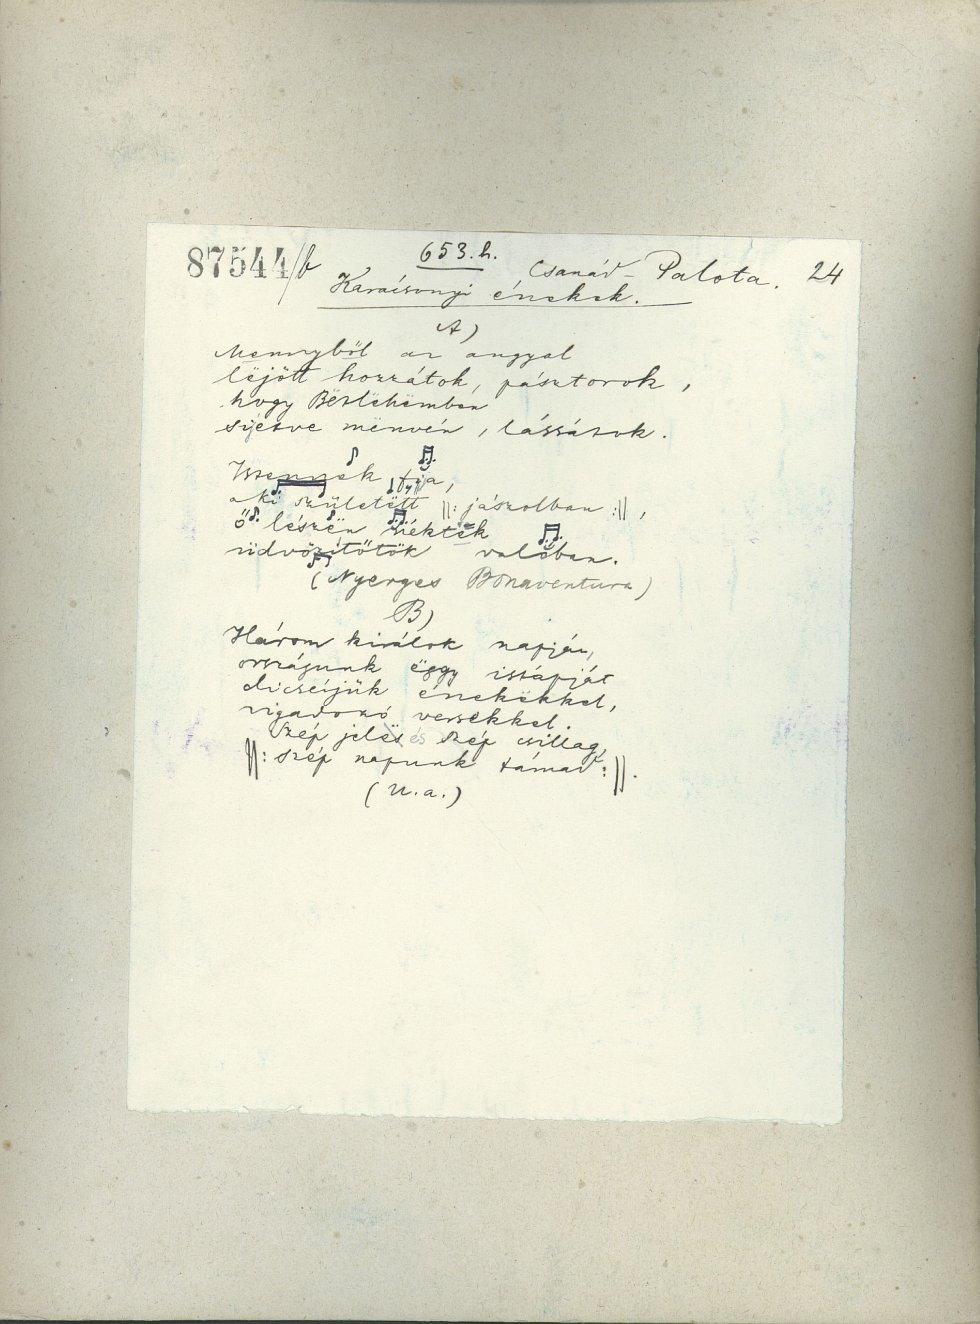 87544/b
653.h.
Csanád-Palota. 24
Karaácsonyi énekek.
A)
Mennyből az angyal
lëjött hozzátok, pásztorok,
hogy Bëtlëhëmben
sijetve mënvén, lássátok.
Istennyek fija,
aki születëtt ||: jászolban :||,
ő lészën
üdvözítőtök valóban.
(Nyerges Bonaventura)
B)
Három királok napján,
országunk ëggy istápját
dicséjük énekëkkel,
vigadozó versekkel.
Szép jelës és szép csillag,
||: szép napunk támad :||.
(U.a.)